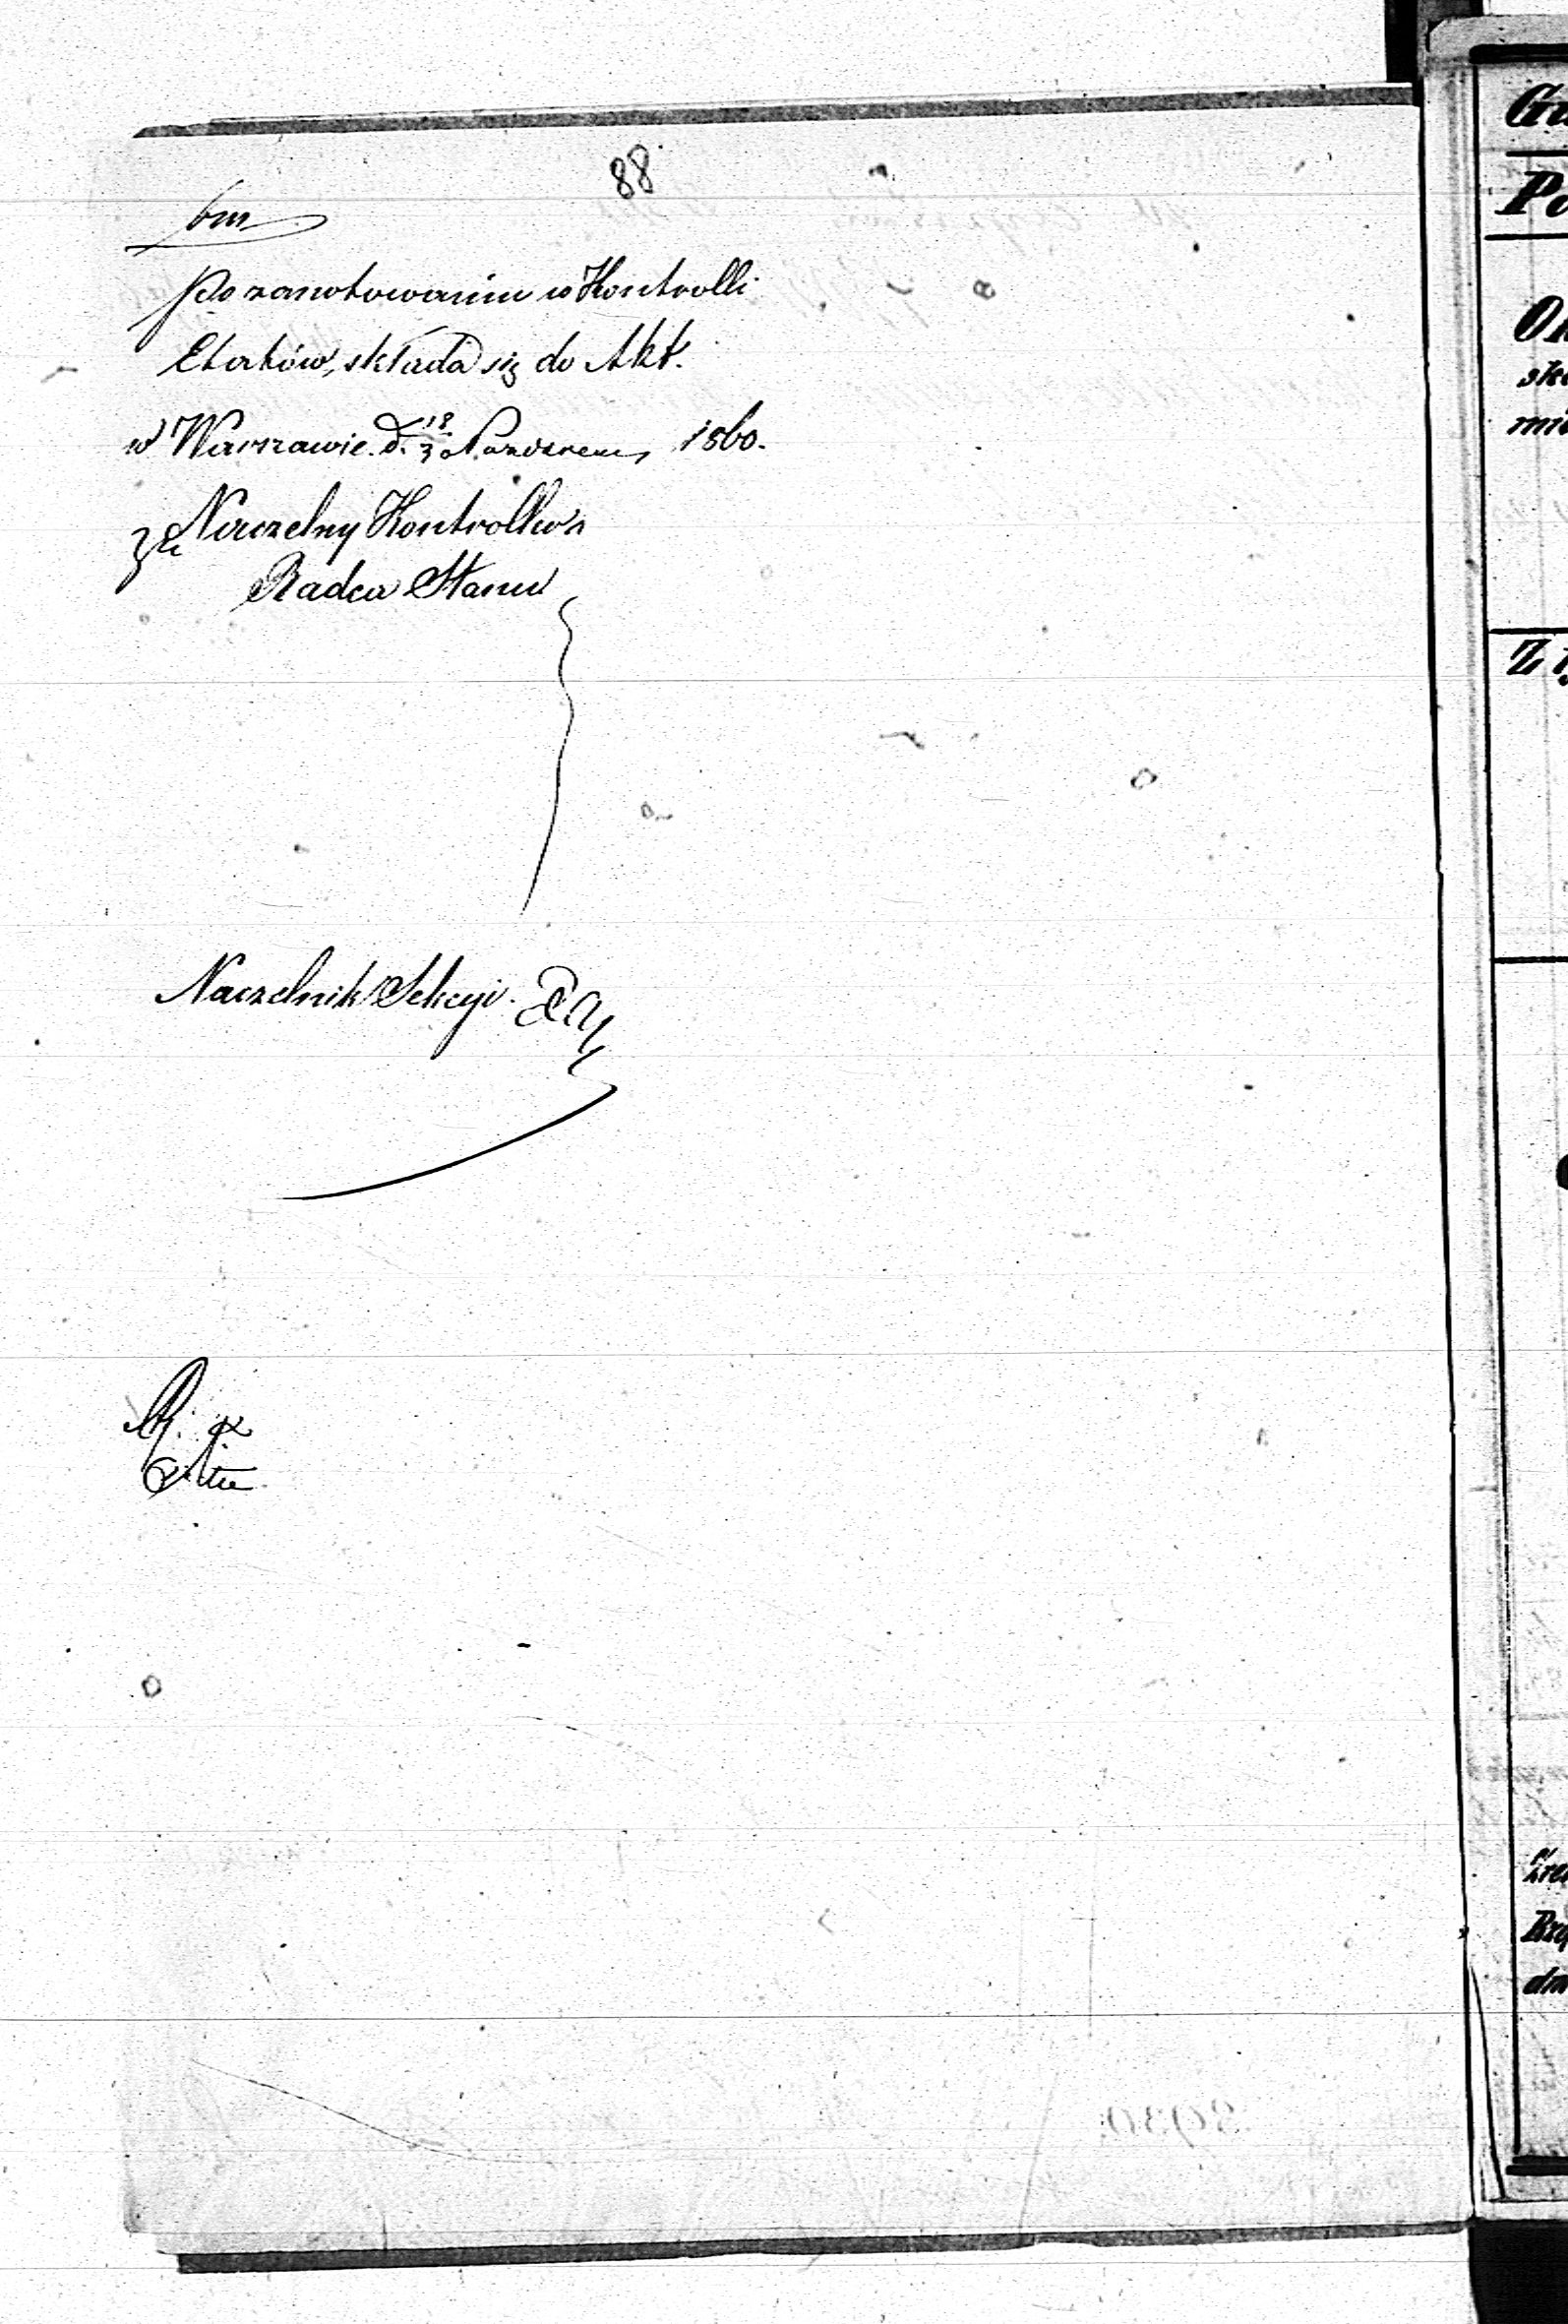 88
bm
Po zanotowaniu w Kontrolli
Etatów, składa się do Akt.
w Warszawie d. 18/30 Październ. 1860.
za Naczelny Kontroller
Radca Stanu
Naczelnik Sekcyi.
Ga
Po
Z
dn